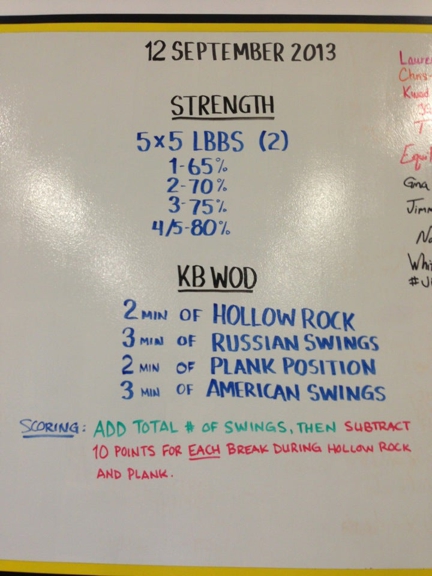 12 SEPTEMBER 2013
STRENGTH
5x5 LBBS (2)
1-65%
2-70%
3-75%
4/5-80%
KB WOD
2 MIN OF HOLLOW ROCK
3 MIN OF RUSSIAN SWINGS
2 MIN OF PLANK POSITION
3 MIN OF AMERICAN SWINGS
SCORING: ADD TOTAL # OF SWINGS, THEN SUBTRACT
10 POINTS FOR EACH BREAK DURING HOLLOW ROCK
AND PLANK.